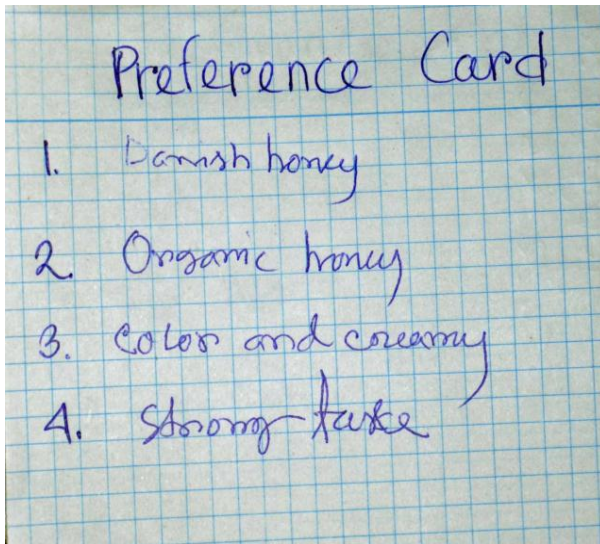 Preference Card
1. Danish honey
2. Organic honey
3. Color and creamy
4. Strong taste